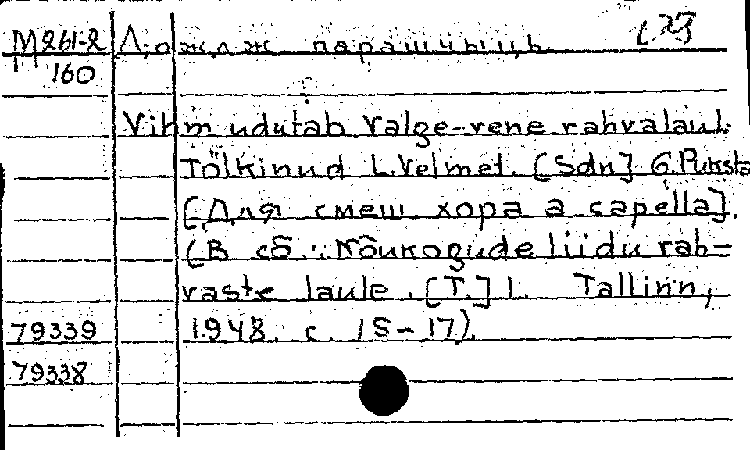 М261-2 Дождж
160
Vihm udutab Valge-vene rahvalaul.
Tõlkinud L. Velmet. [Sdn] G. Puksta
[Для смеш хора a capella].
(В сб.: Nõukogude liidu rah-
vaste laule. [T.] 1. Tallinn,
79339 1948. с. 15-17).
79338